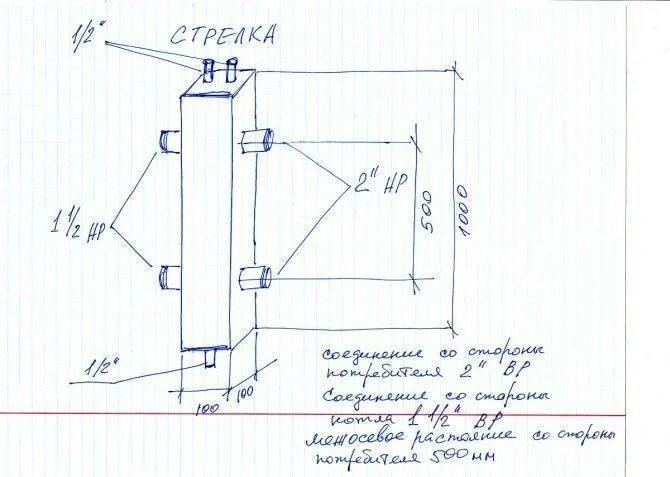 1/2"
СТРЕЛКА
1 1/2 НР
2" НР
500
1000
1/2"
100
100
соединение со стороны
потребителя 2" ВР
Соединение со стороны
котла 1 1/2" ВР
межосевое растояние со стороны
потребителя 500мм